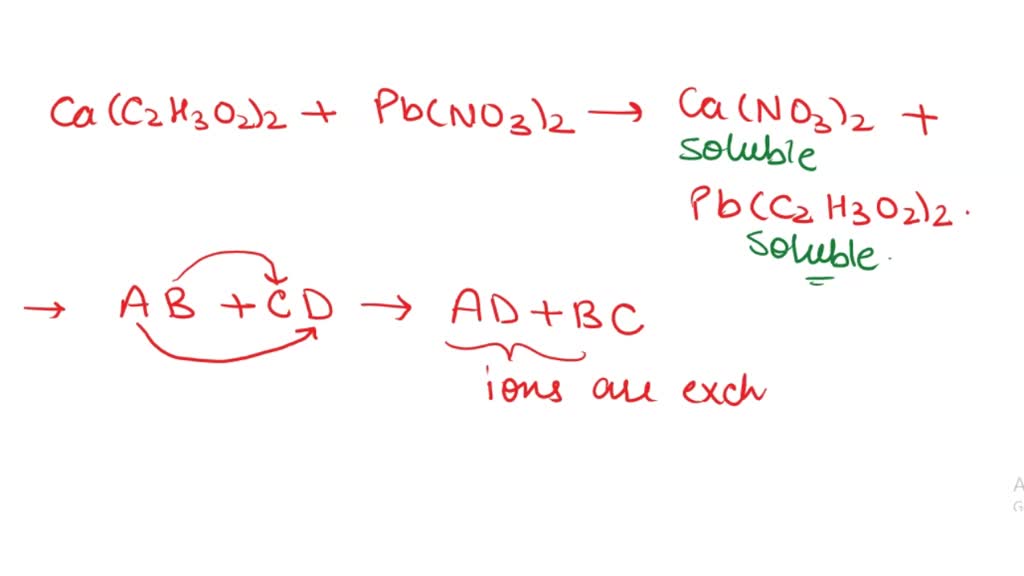 Ca(C2H3O2)2 + Pb(NO3)2 → Ca(NO3)2 +
soluble
Pb(C2H3O2)2.
soluble.
→ AB + CD → AD + BC
ions are exch
A
G